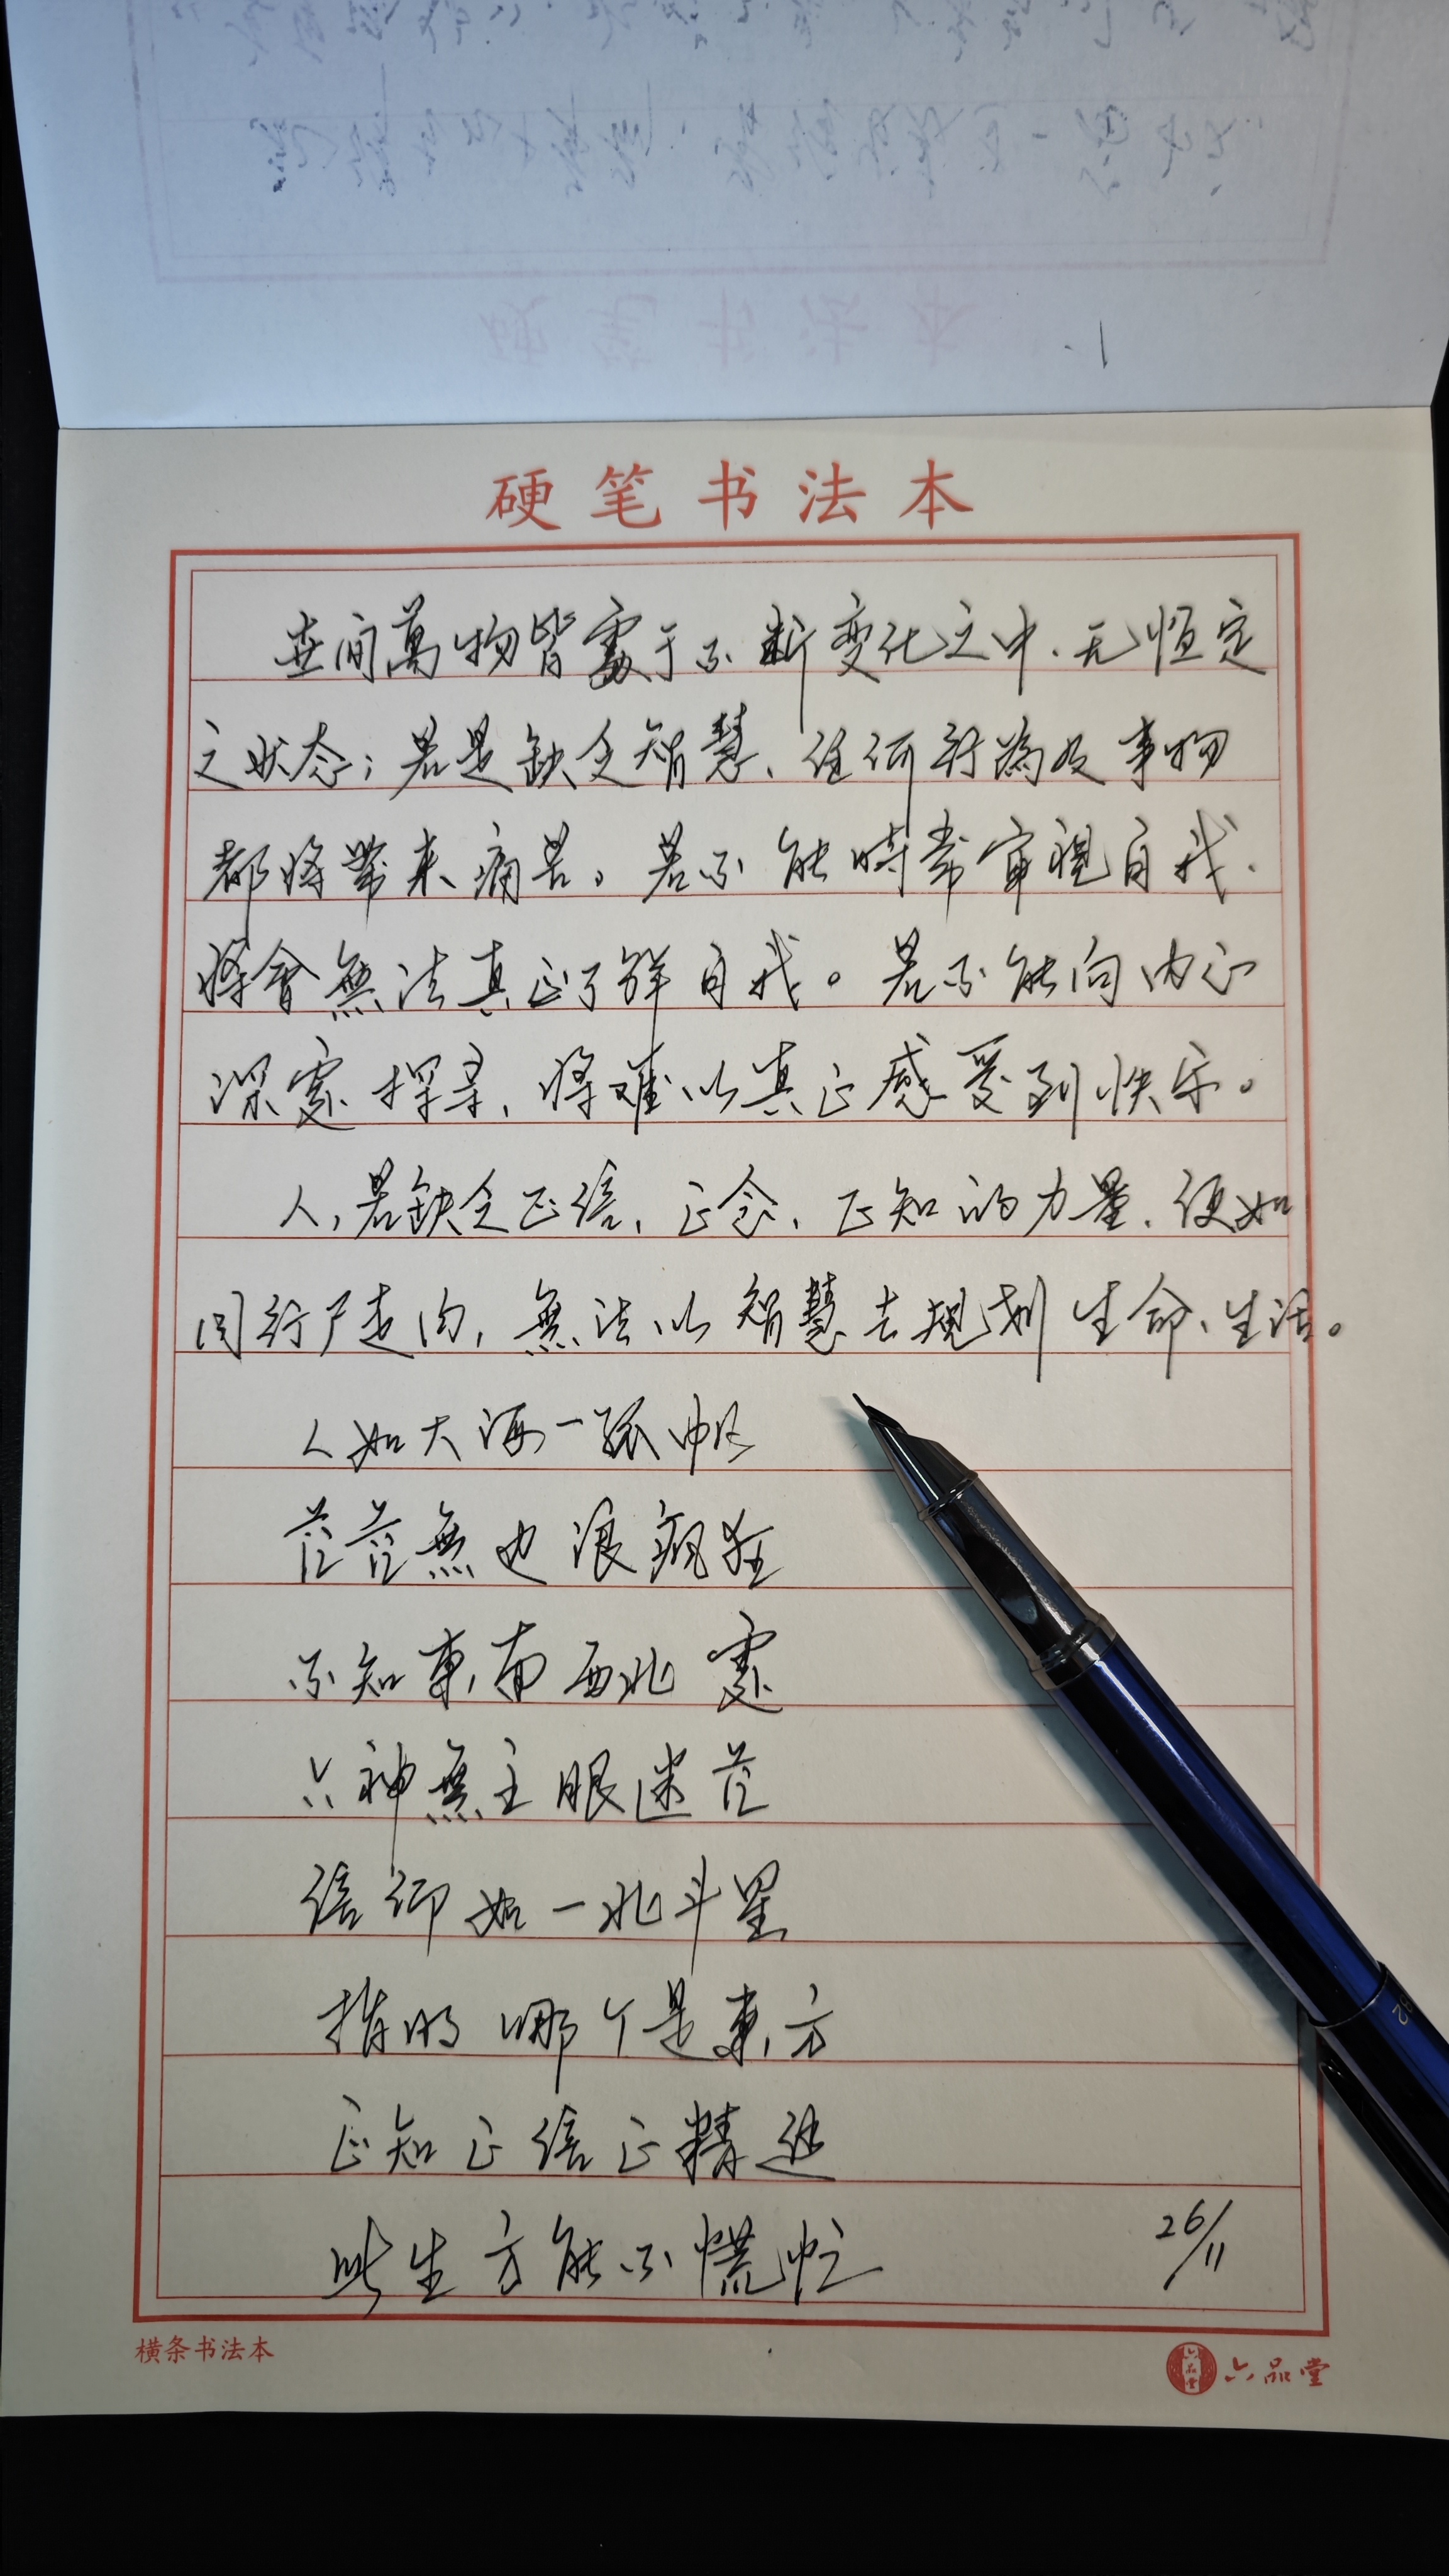 硬笔书法本
世间萬物皆處于不断变化之中、无恒定
之状态；若是缺乏智慧、任何行為及事物
都将帶来痛苦。若不能時常审視自我、
将會無法真正了解自我。若不能向内心
深處探寻、将难以真正感受到快乐。
人，若缺乏正信、正念、正知的力量、便如
同行尸走肉，無法以智慧去规划生命、生活。
人如大海一孤帆
茫茫無边浪疯狂
不知東南西北處
六神無主眼迷茫
信仰如一北斗星
指明哪个是東方
正知正信正精进
此生方能不慌忙
26/11
横条书法本
六品堂